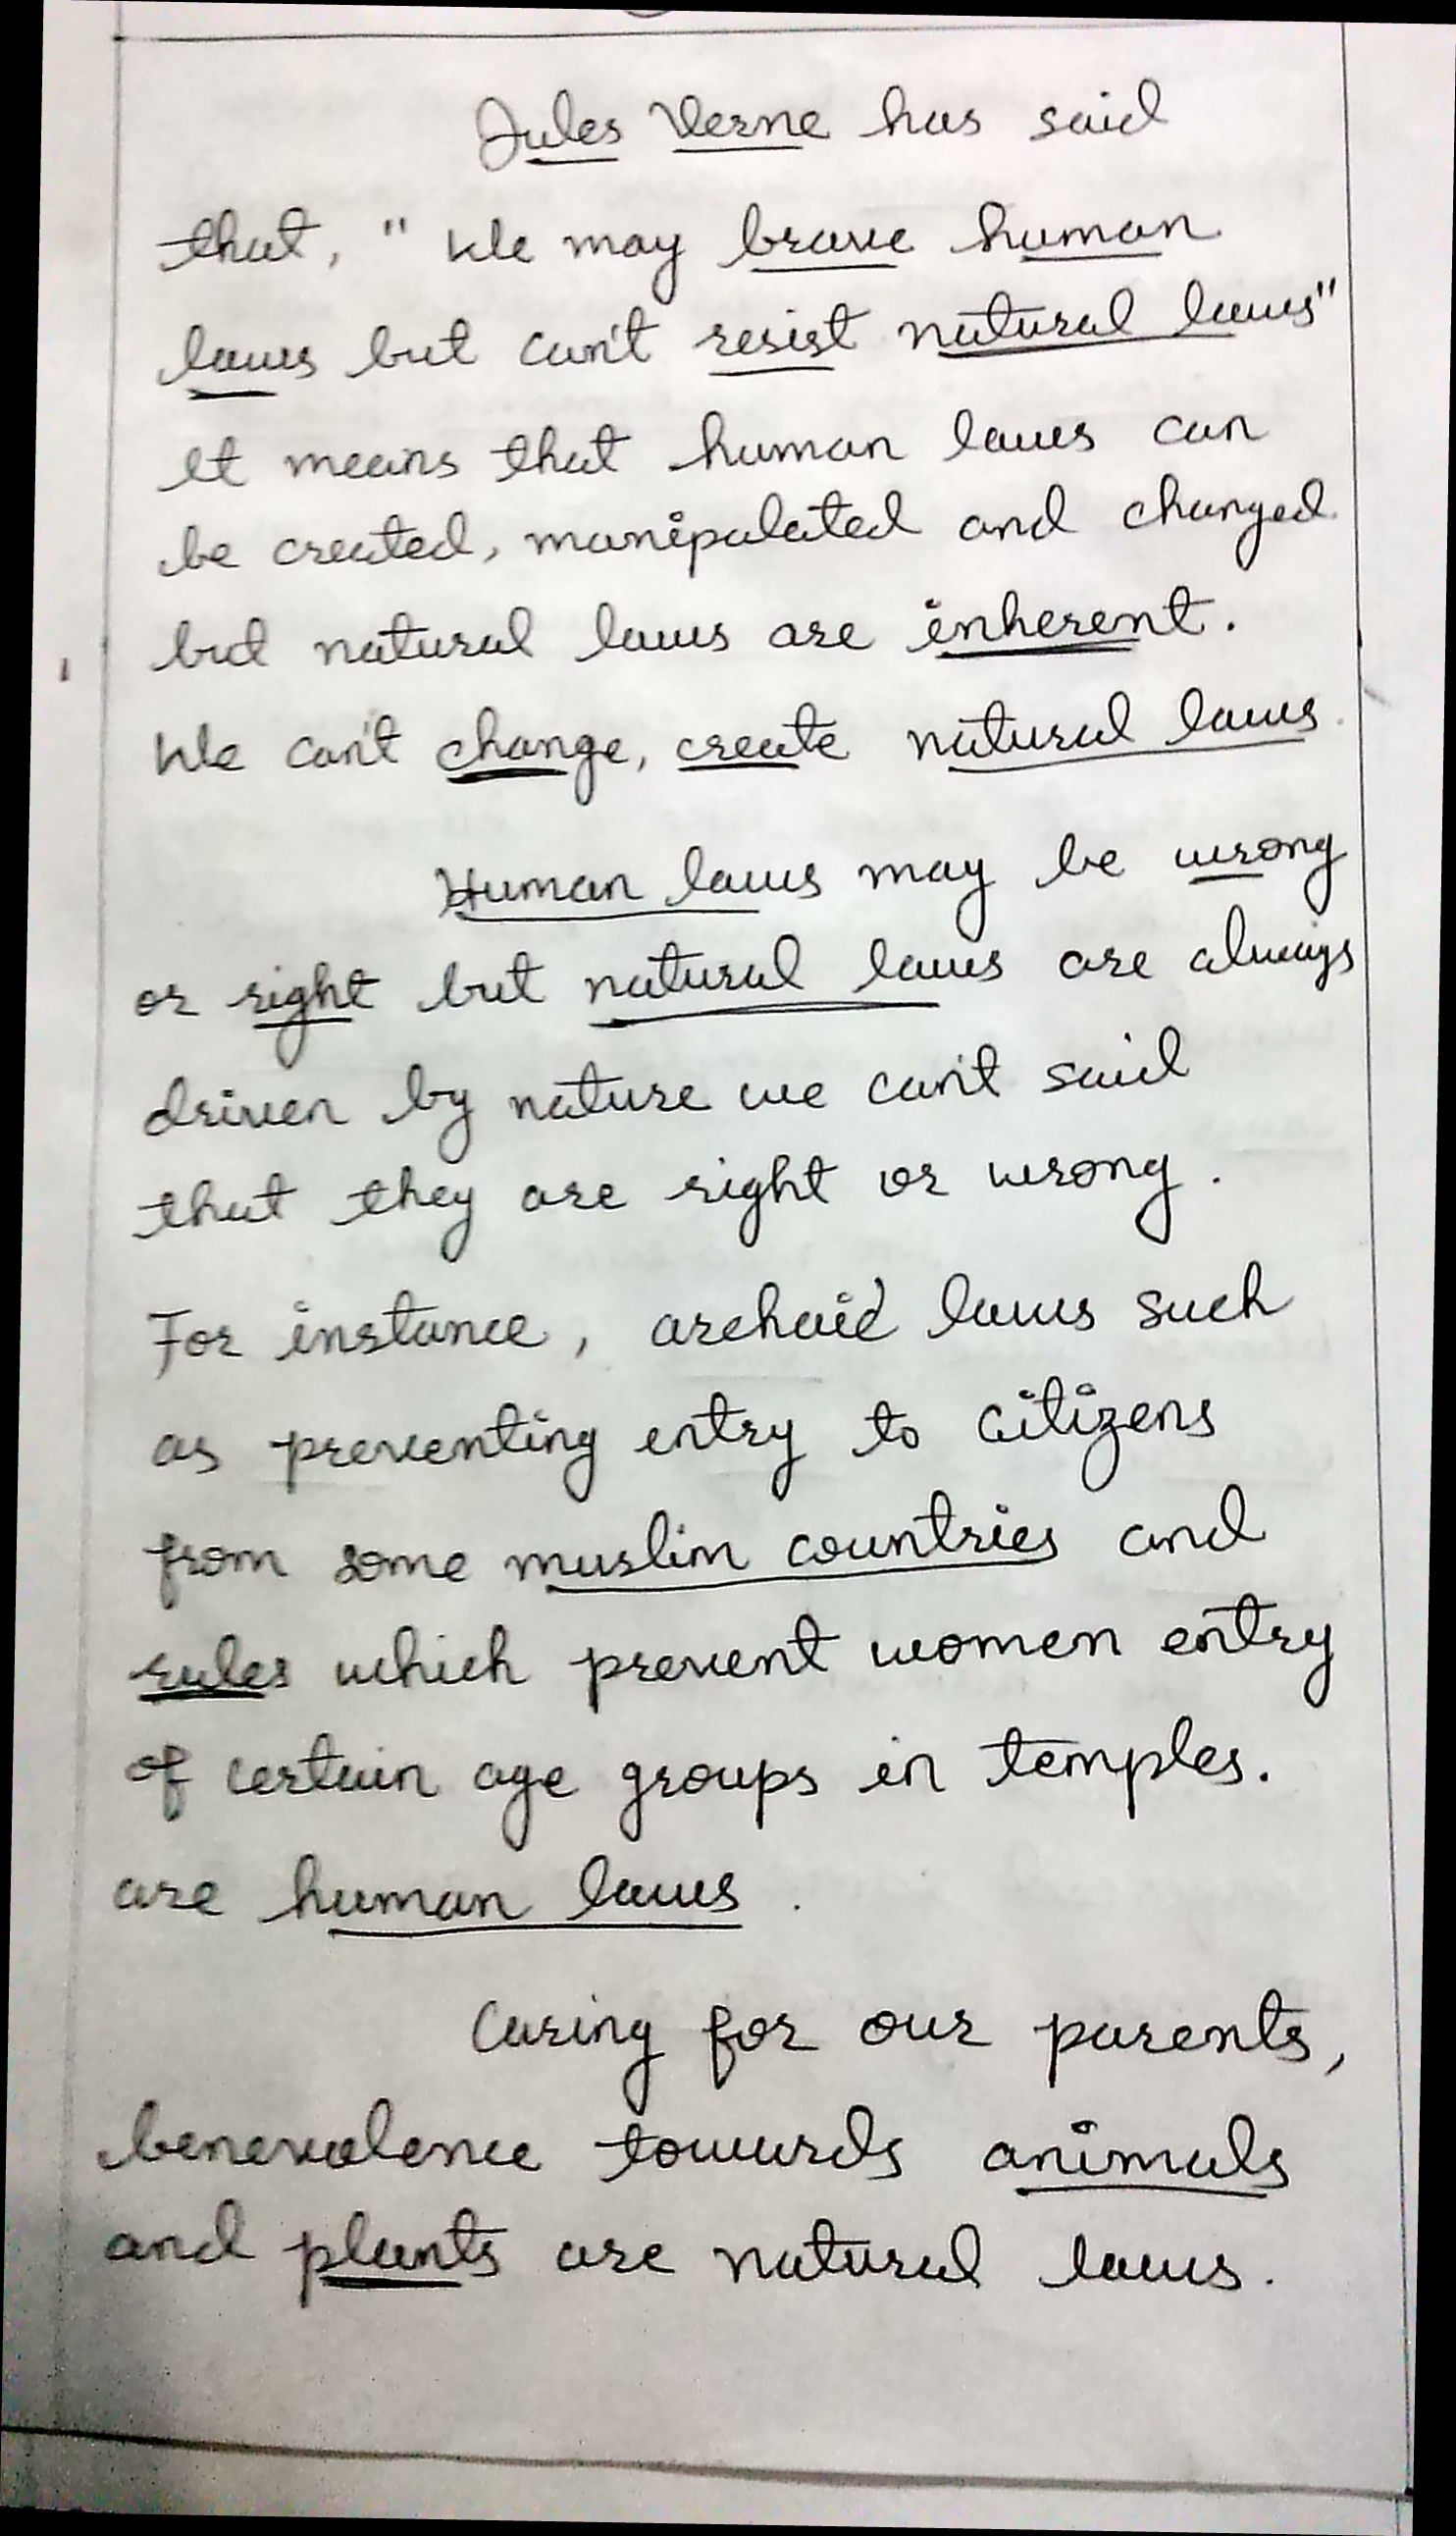 Jules Verne has said
that, " We may brave human
laws but can't resist natural laws"
It means that human laws can
be created, manipulated and changed
but natural laws are inherent.
We can't change, create natural laws.
Human laws may be wrong
or right but natural laws are always
driven by nature we can't said
that they are right or wrong.
For instance, archaic laws such
as preventing entry to citizens
from some muslim countries and
rules which prevent women entry
of certain age groups in temples.
are human laws.
Caring for our parents,
benevolence towards animals
and plants are natural laws.